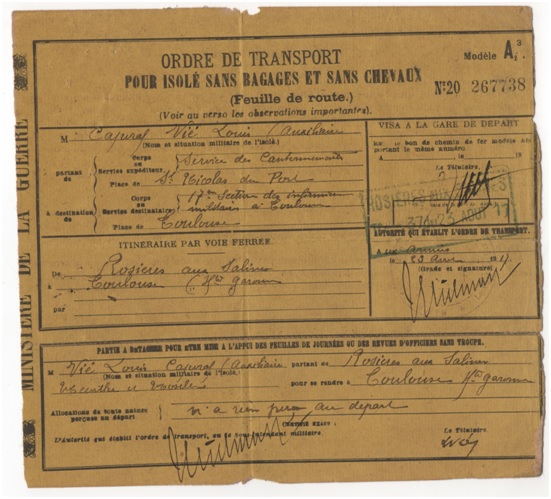 ORDRE DE TRANSPORT
POUR ISOLÉ SANS BAGAGES ET SANS CHEVAUX
(Feuille de route.)
(Voir au verso les observations importantes.)
Modèle A
N° 20 267738
MINISTÈRE DE LA GUERRE
M Caporal Vié Louis (Auxiliaire
(Nom et situation militaire de l'isolé.)
partant de
Corps ou Service expéditeur. Service des Cantonnements
Place de St Nicolas du Port
à destination de
Corps ou Service destinataire 17e Section des infirmiers militaires à Toulouse
Place de Toulouse
VISA A LA GARE DE DÉPART
bon de chemin de fer modèle
portant le même numéro
Le 19
ROSIÈRES-AUX-SALINES
23 AOUT 17
AUTORITÉ QUI ÉTABLIT L'ORDRE DE TRANSPORT.
A aux Armées
le 23 1917
(Grade et signature)
ITINÉRAIRE PAR VOIE FERRÉE
De Rosières aux Salines
à Toulouse (Hte Garonne
par
PARTIE A DÉTACHER POUR ÊTRE MISE A L'APPUI DES FEUILLES DE JOURNÉES OU DES REVUES D'OFFICIERS SANS TROUPE.
M Vié Louis Caporal (Auxiliaire partant de Rosières aux Salines
(Nom et situation militaire de l'isolé.)
Meurthe et Moselle pour se rendre à Toulouse Hte Garonne
Allocations de toute nature perçues au départ n'a rien perçu au départ
CERTIFIÉ EXACT :
L'Autorité qui établit l'ordre de transport, ou le sous-intendant militaire.
Le Titulaire,
Vié